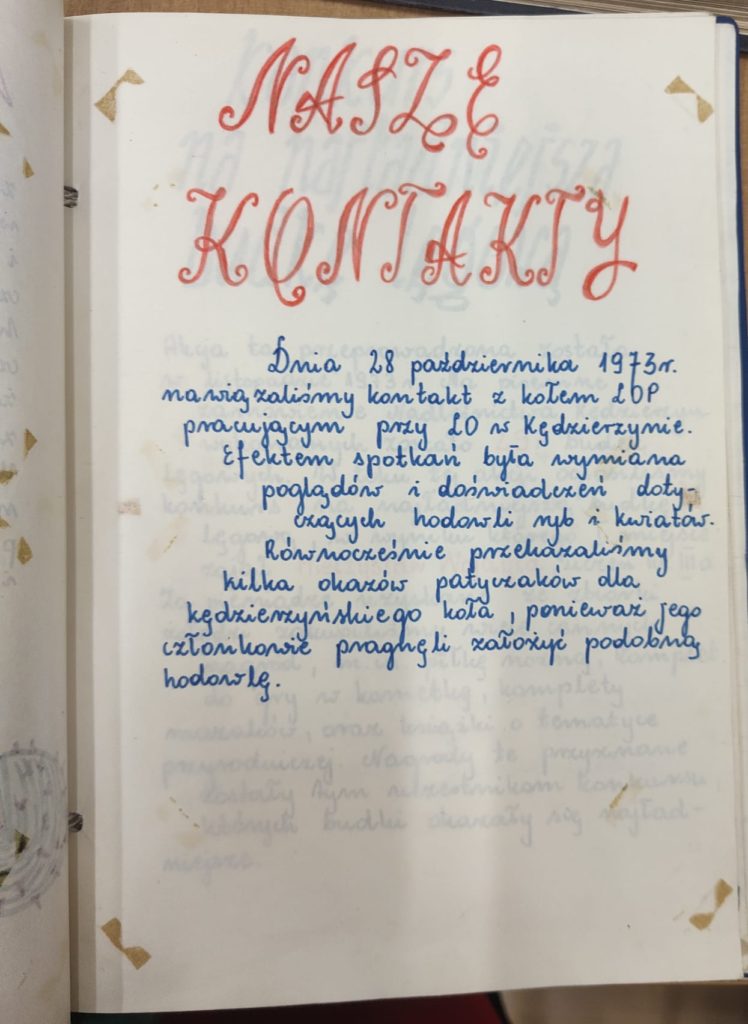 NASZE
KONTAKTY
Dnia 28 października 1973r.
nawiązaliśmy kontakt z kołem LOP
pracującym przy LO w Kędzierzynie.
Efektem spotkań była wymiana
poglądów i doświadczeń doty-
czących hodowli ryb i kwiatów.
Równocześnie przekazaliśmy
kilka okazów patyczaków dla
kędzierzyńskiego koła, ponieważ jego
członkowie pragnęli założyć podobną
hodowlę.